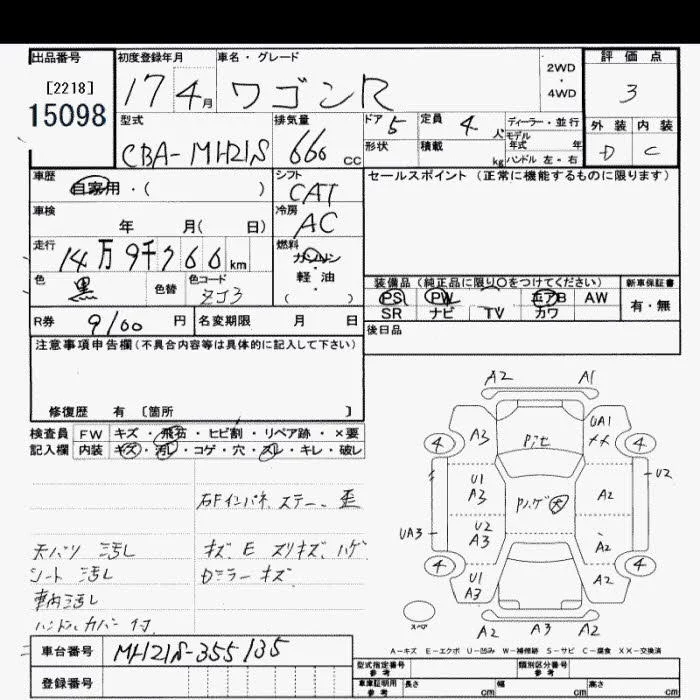 出品番号 初度登録年月 車名・グレード 評価点
[2218] 17 4月 ワゴンR 2WD・4WD 3
15098
型式 排気量 ドア 5 定員 4人 ディーラー・並行 外装 内装
CBA-MH21S 660cc 形状 積載 kg モデル年式 年 ハンドル 左・右 D C
車歴 自家用・( ) シフト CAT セールスポイント (正常に機能するものに限ります)
車検 年 月( 日) 冷房 AC
走行 14万9千766km 燃料 ガソリン・軽油 ( )
色 黒 色替 色コード ZJ3 装備品 (純正品に限り〇をつけてください) 新車保証書
PS PW エアB AW 有・無
R券 9100円 名変期限 月 日 SR ナビ TV カワ
後日品
注意事項申告欄 (不具合内容等は具体的に記入して下さい)
修復歴 有 〔箇所 〕
検査員 FW キズ・飛石・ヒビ割・リペア跡・×要
記入欄 内装 キズ・汚レ・コゲ・穴・スレ・キレ・破レ
右Fインパネ、ステー、歪
天バリ 汚レ キズ、E スリキズ、ハゲ
シート 汚レ ミラー キズ
車内汚レ
ハンドルカバー付
A2 A1
4 A3 Pit UA1 XX 4
U1 A3 Pハゲ大 A2 U2
UA3 U2 A3 A2
4 U1 A3 A2 4
スペア A2 A3 A2
A-キズ E-エクボ U-凹み W-補修跡 S-サビ C-腐食 XX-交換済
車台番号 MH21S-355135
登録番号
型式指定番号 参考 類別区分番号 参考
車庫証明用 参考 長さ cm 幅 cm 高さ cm